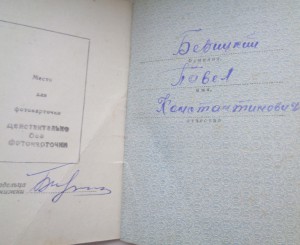 Место
для
фотокарточки
ДЕЙСТВИТЕЛЬНО
БЕЗ
ФОТОКАРТОЧКИ
Бевицкий
фамилия
Павел
имя,
Константинович
отчество